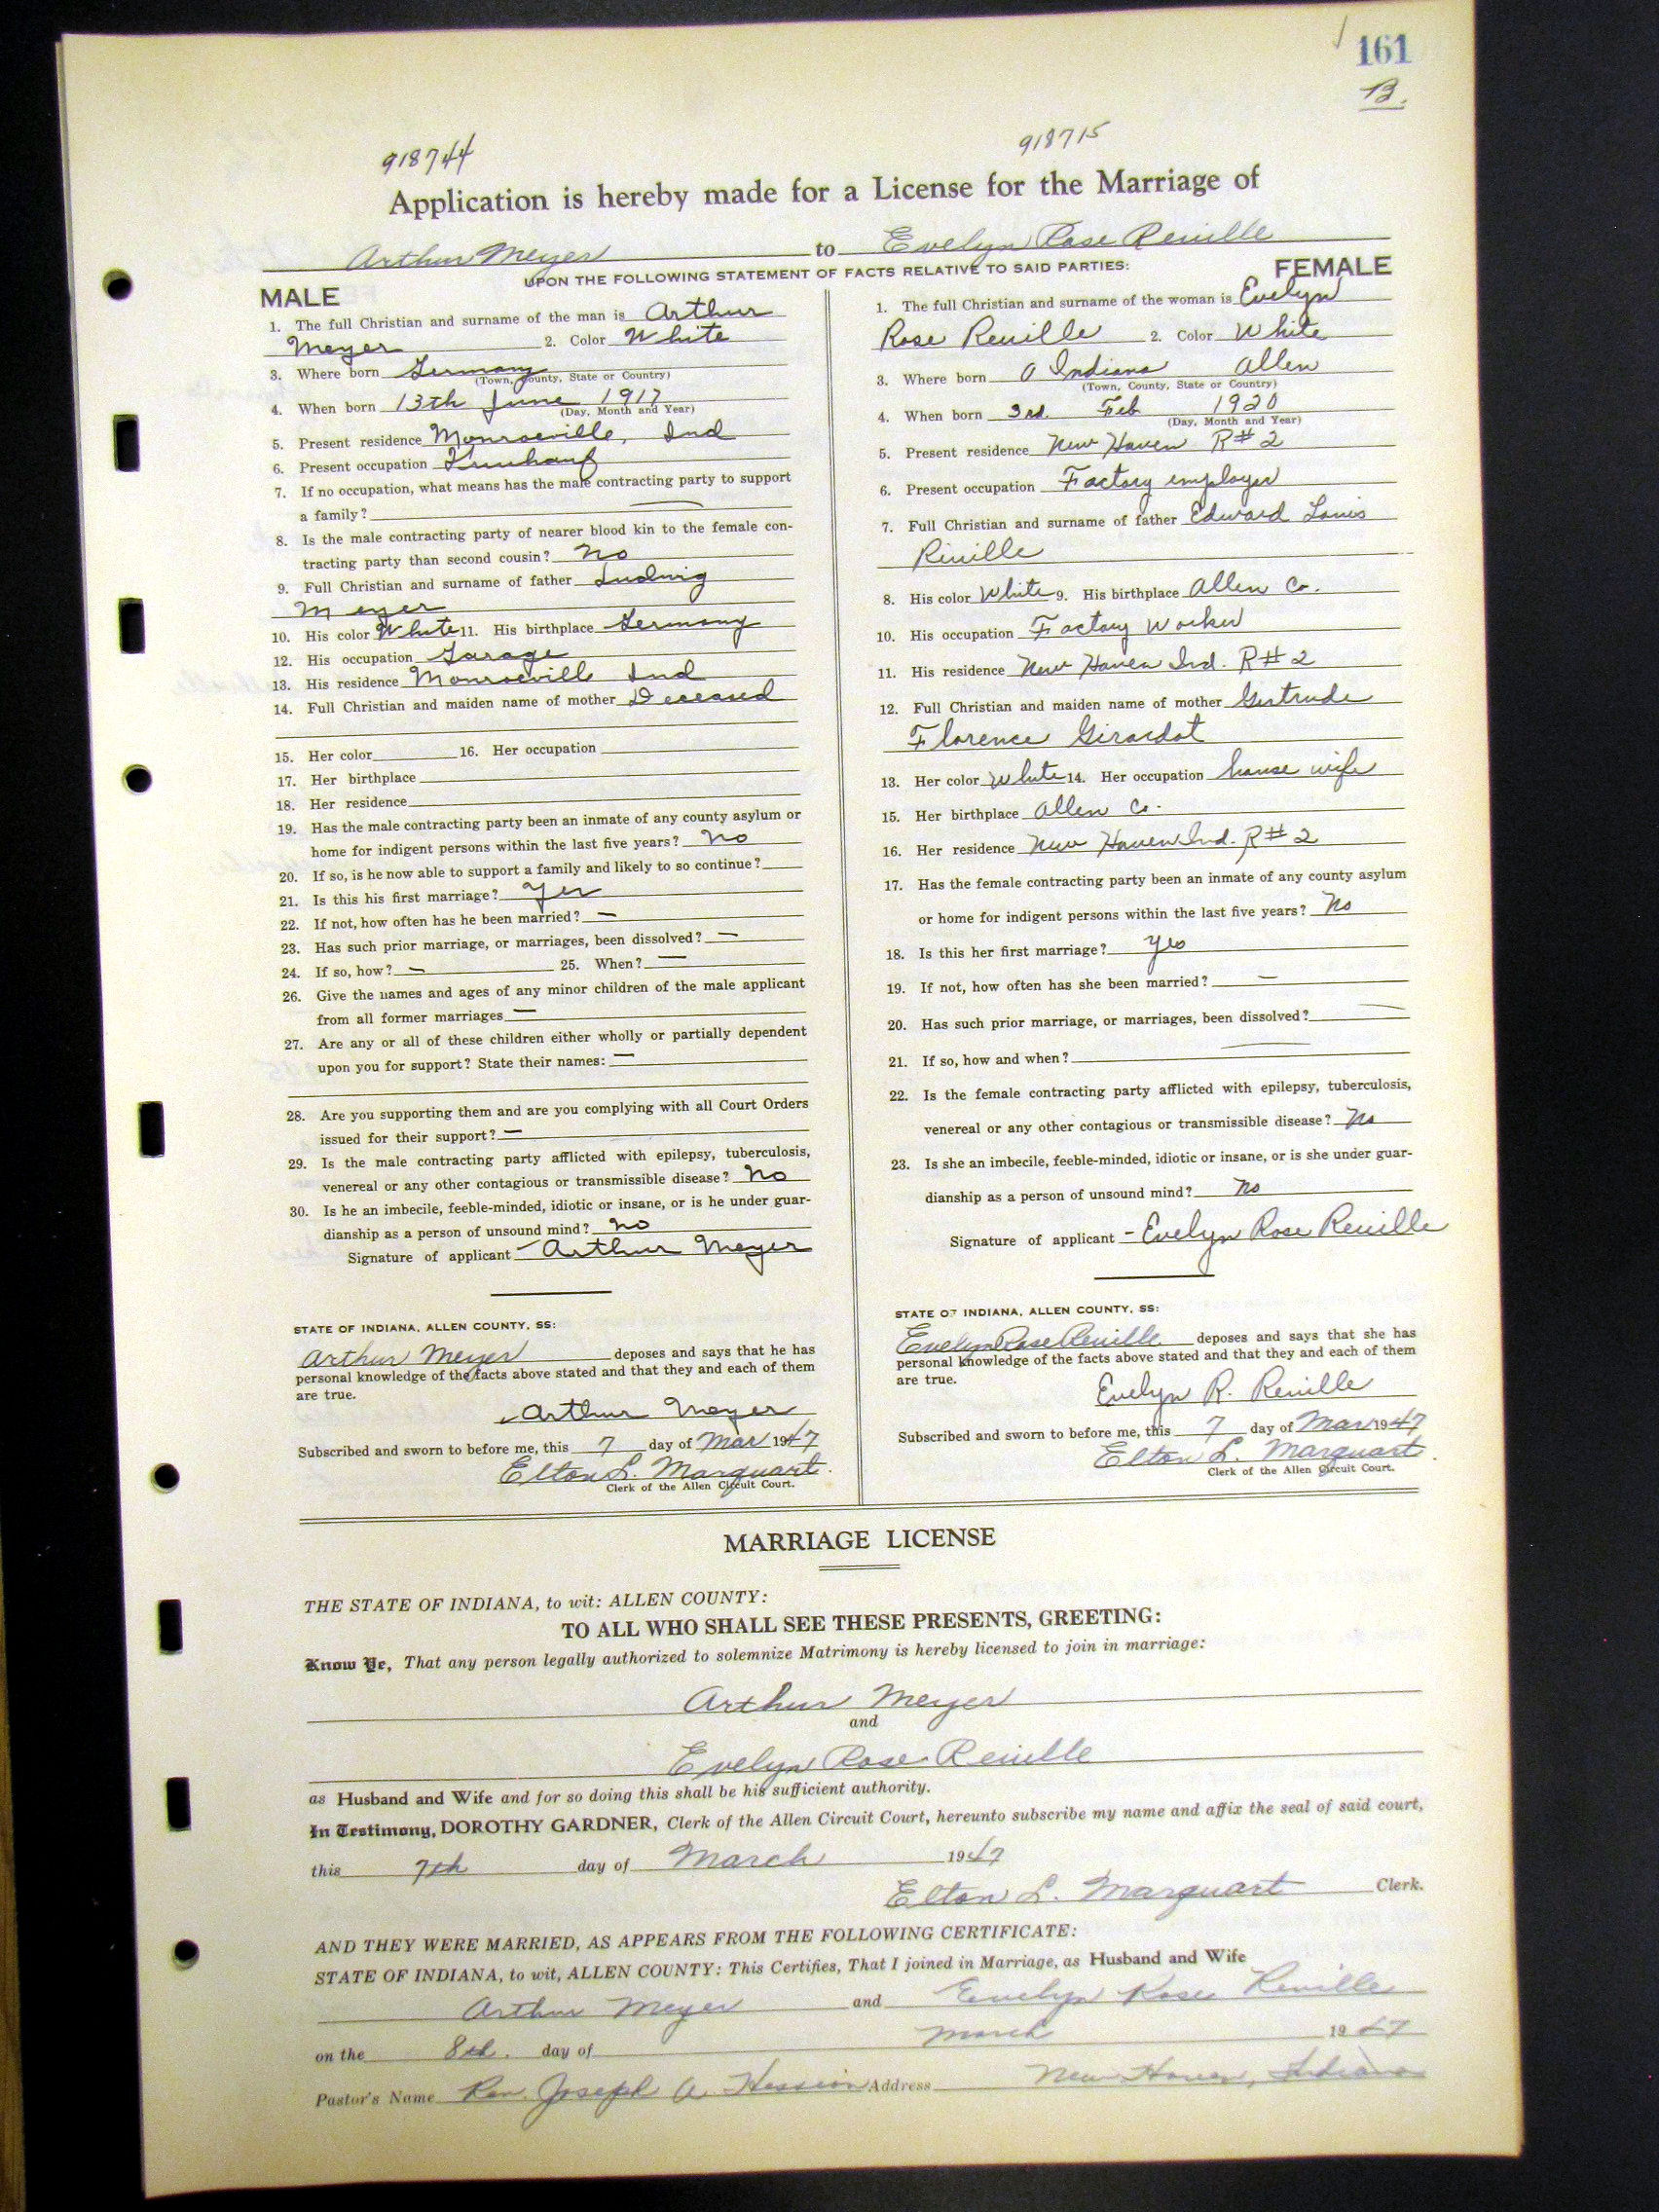 161
B.
918744
918715
Application is hereby made for a License for the Marriage of
Arthur Meyer to Evelyn Rose Reuille
UPON THE FOLLOWING STATEMENT OF FACTS RELATIVE TO SAID PARTIES:
MALE
1. The full Christian and surname of the man is Arthur
Meyer 2. Color White
3. Where born Germany
(Town, County, State or Country)
4. When born 13th June 1917
(Day, Month and Year)
5. Present residence Monroeville, Ind
6. Present occupation
7. If no occupation, what means has the male contracting party to support
a family?
8. Is the male contracting party of nearer blood kin to the female con-
tracting party than second cousin? No
9. Full Christian and surname of father Ludwig
Meyer
10. His color White 11. His birthplace Germany
12. His occupation Garage
13. His residence Monroeville Ind
14. Full Christian and maiden name of mother Deceased
15. Her color 16. Her occupation
17. Her birthplace
18. Her residence
19. Has the male contracting party been an inmate of any county asylum or
home for indigent persons within the last five years? No
20. If so, is he now able to support a family and likely to so continue?
21. Is this his first marriage? Yes
22. If not, how often has he been married? —
23. Has such prior marriage, or marriages, been dissolved? —
24. If so, how? — 25. When? —
26. Give the names and ages of any minor children of the male applicant
from all former marriages —
27. Are any or all of these children either wholly or partially dependent
upon you for support? State their names: —
28. Are you supporting them and are you complying with all Court Orders
issued for their support? —
29. Is the male contracting party afflicted with epilepsy, tuberculosis,
venereal or any other contagious or transmissible disease? No
30. Is he an imbecile, feeble-minded, idiotic or insane, or is he under guar-
dianship as a person of unsound mind? No
Signature of applicant Arthur Meyer
STATE OF INDIANA, ALLEN COUNTY, SS:
Arthur Meyer deposes and says that he has
personal knowledge of the facts above stated and that they and each of them
are true.
Arthur Meyer
Subscribed and sworn to before me, this 7 day of Mar 1947
Elton L. Marquart.
Clerk of the Allen Circuit Court.
FEMALE
1. The full Christian and surname of the woman is Evelyn
Rose Reuille 2. Color White
3. Where born Indiana Allen
(Town, County, State or Country)
4. When born 3rd. Feb 1920
(Day, Month and Year)
5. Present residence New Haven R#2
6. Present occupation Factory employee
7. Full Christian and surname of father Edward Louis
Reuille
8. His color White 9. His birthplace Allen Co.
10. His occupation Factory worker
11. His residence New Haven Ind. R#2
12. Full Christian and maiden name of mother Gertrude
Florence Girardot
13. Her color White 14. Her occupation house wife
15. Her birthplace Allen Co.
16. Her residence New Haven Ind. R#2
17. Has the female contracting party been an inmate of any county asylum
or home for indigent persons within the last five years? No
18. Is this her first marriage? Yes
19. If not, how often has she been married? —
20. Has such prior marriage, or marriages, been dissolved? —
21. If so, how and when? —
22. Is the female contracting party afflicted with epilepsy, tuberculosis,
venereal or any other contagious or transmissible disease? No
23. Is she an imbecile, feeble-minded, idiotic or insane, or is she under guar-
dianship as a person of unsound mind? No
Signature of applicant - Evelyn Rose Reuille
STATE OF INDIANA, ALLEN COUNTY, SS:
Evelyn Rose Reuille deposes and says that she has
personal knowledge of the facts above stated and that they and each of them
are true.
Evelyn R. Reuille
Subscribed and sworn to before me, this 7 day of Mar 1947
Elton L. Marquart.
Clerk of the Allen Circuit Court.
MARRIAGE LICENSE
THE STATE OF INDIANA, to wit: ALLEN COUNTY:
TO ALL WHO SHALL SEE THESE PRESENTS, GREETING:
Know Ye, That any person legally authorized to solemnize Matrimony is hereby licensed to join in marriage:
Arthur Meyer
and
Evelyn Rose Reuille
as Husband and Wife and for so doing this shall be his sufficient authority.
In Testimony, DOROTHY GARDNER, Clerk of the Allen Circuit Court, hereunto subscribe my name and affix the seal of said court,
this 7th day of March 1947
Elton L. Marquart Clerk.
AND THEY WERE MARRIED, AS APPEARS FROM THE FOLLOWING CERTIFICATE:
STATE OF INDIANA, to wit, ALLEN COUNTY: This Certifies, That I joined in Marriage, as Husband and Wife
Arthur Meyer and Evelyn Rose Reuille
on the 8th. day of March 1947
Pastor's Name Rev. Joseph A. Hession Address New Haven, Indiana